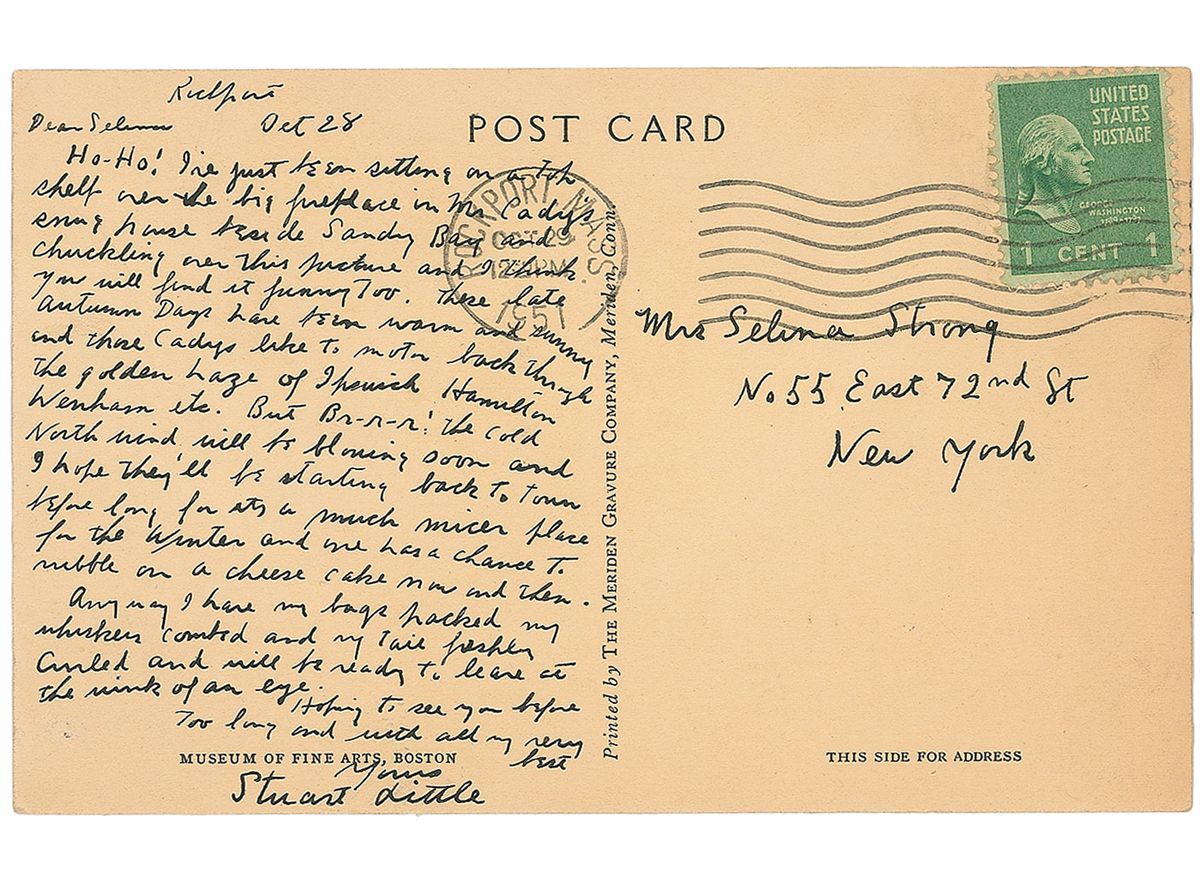 Rockport
Oct 28
Dear Selena
Ho-Ho! I've just been sitting on a toh
shelf over the big fireplace in Mr Cady's
snug house beside Sandy Bay and
chuckling over this picture and I think
you will find it funny too. These late
Autumn Days have been warm and sunny
and those Cadys like to motor back through
the golden haze of Ipswich Hamilton
Wenham etc. But Br-r-r! the cold
North wind will be blowing soon and
I hope they'll be starting back to town
before long for its a much nicer place
for the winter and one has a chance to
nibble on a cheese cake now and then.
Anyway I have my bags packed my
whiskers combed and my tail freshly
Curled and will be ready to leave at
the wink of an eye.
Hoping to see you before
too long and with all my very
best
Yours
Stuart Little
MUSEUM OF FINE ARTS, BOSTON
POST CARD
ROCKPORT MASS.
OCT 29
PM
1951
Printed by THE MERIDEN GRAVURE COMPANY, Meriden, Conn.
UNITED
STATES
POSTAGE
GEORGE
WASHINGTON
1789-1797
1 CENT 1
Mrs Selena Strong
No 55 East 72nd St
New York
THIS SIDE FOR ADDRESS